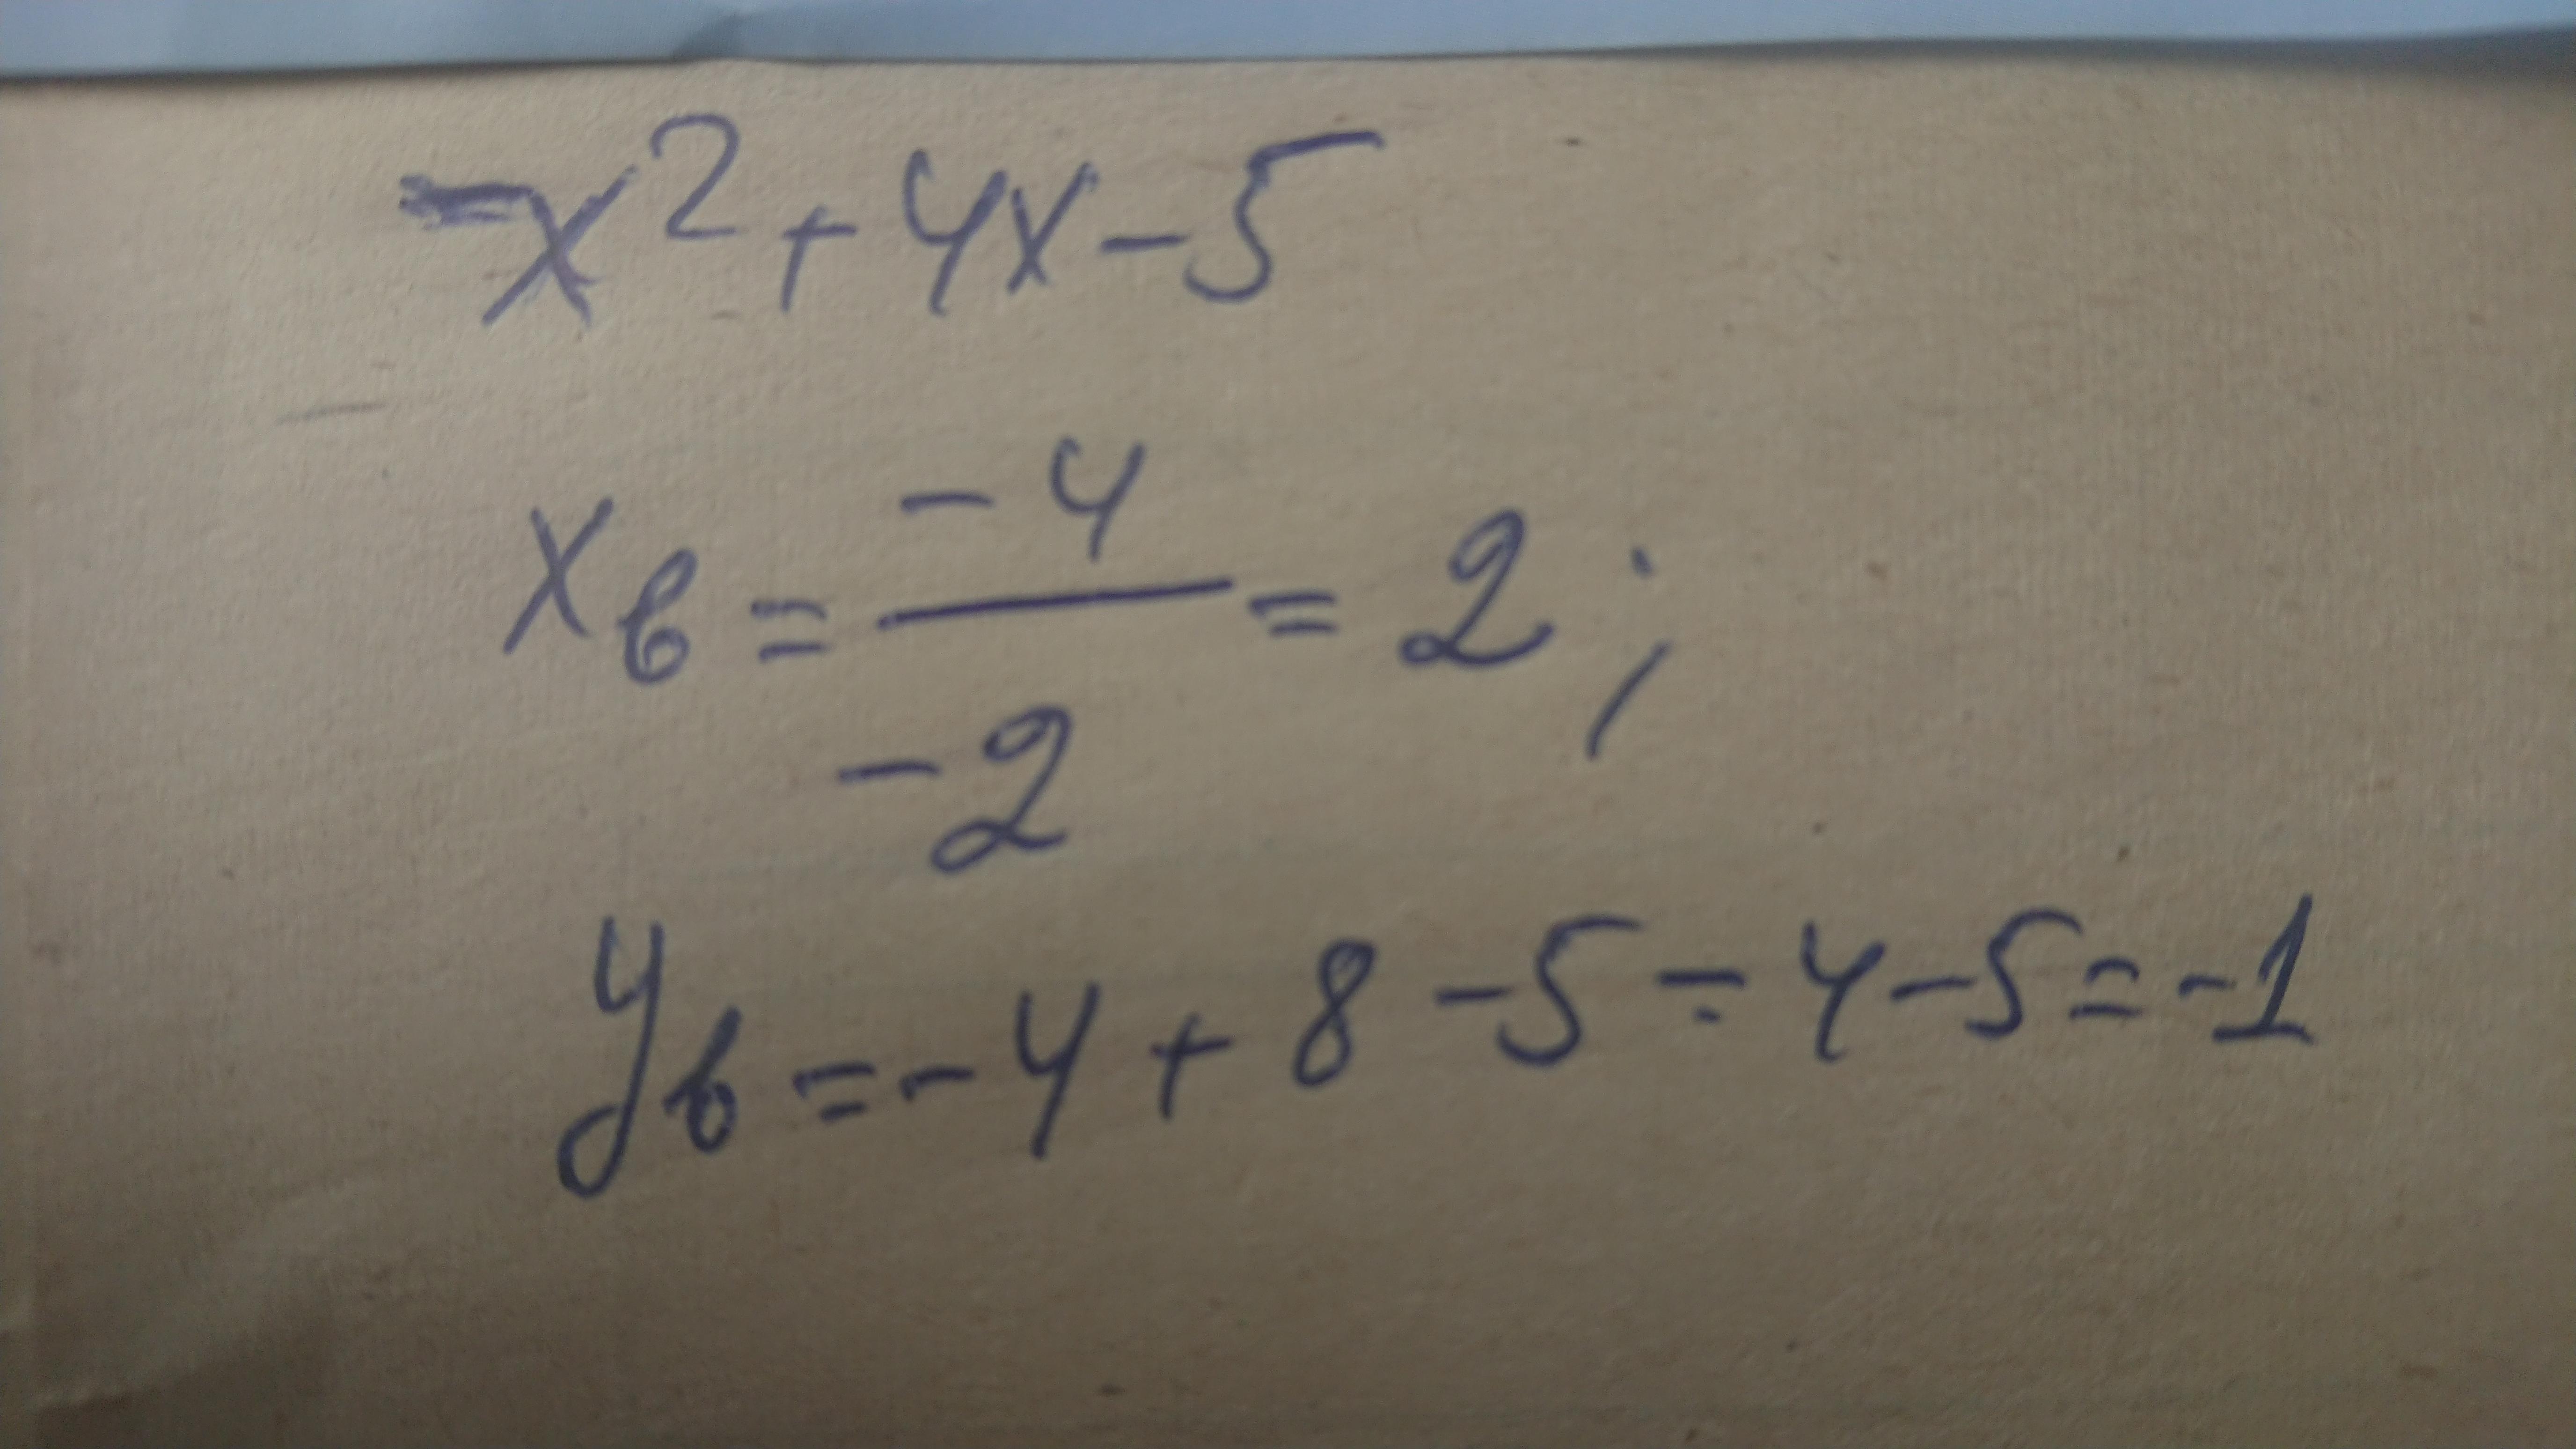 -x² + 4x - 5
xв = -4 / -2 = 2;
yв = -4 + 8 - 5 = 4 - 5 = -1